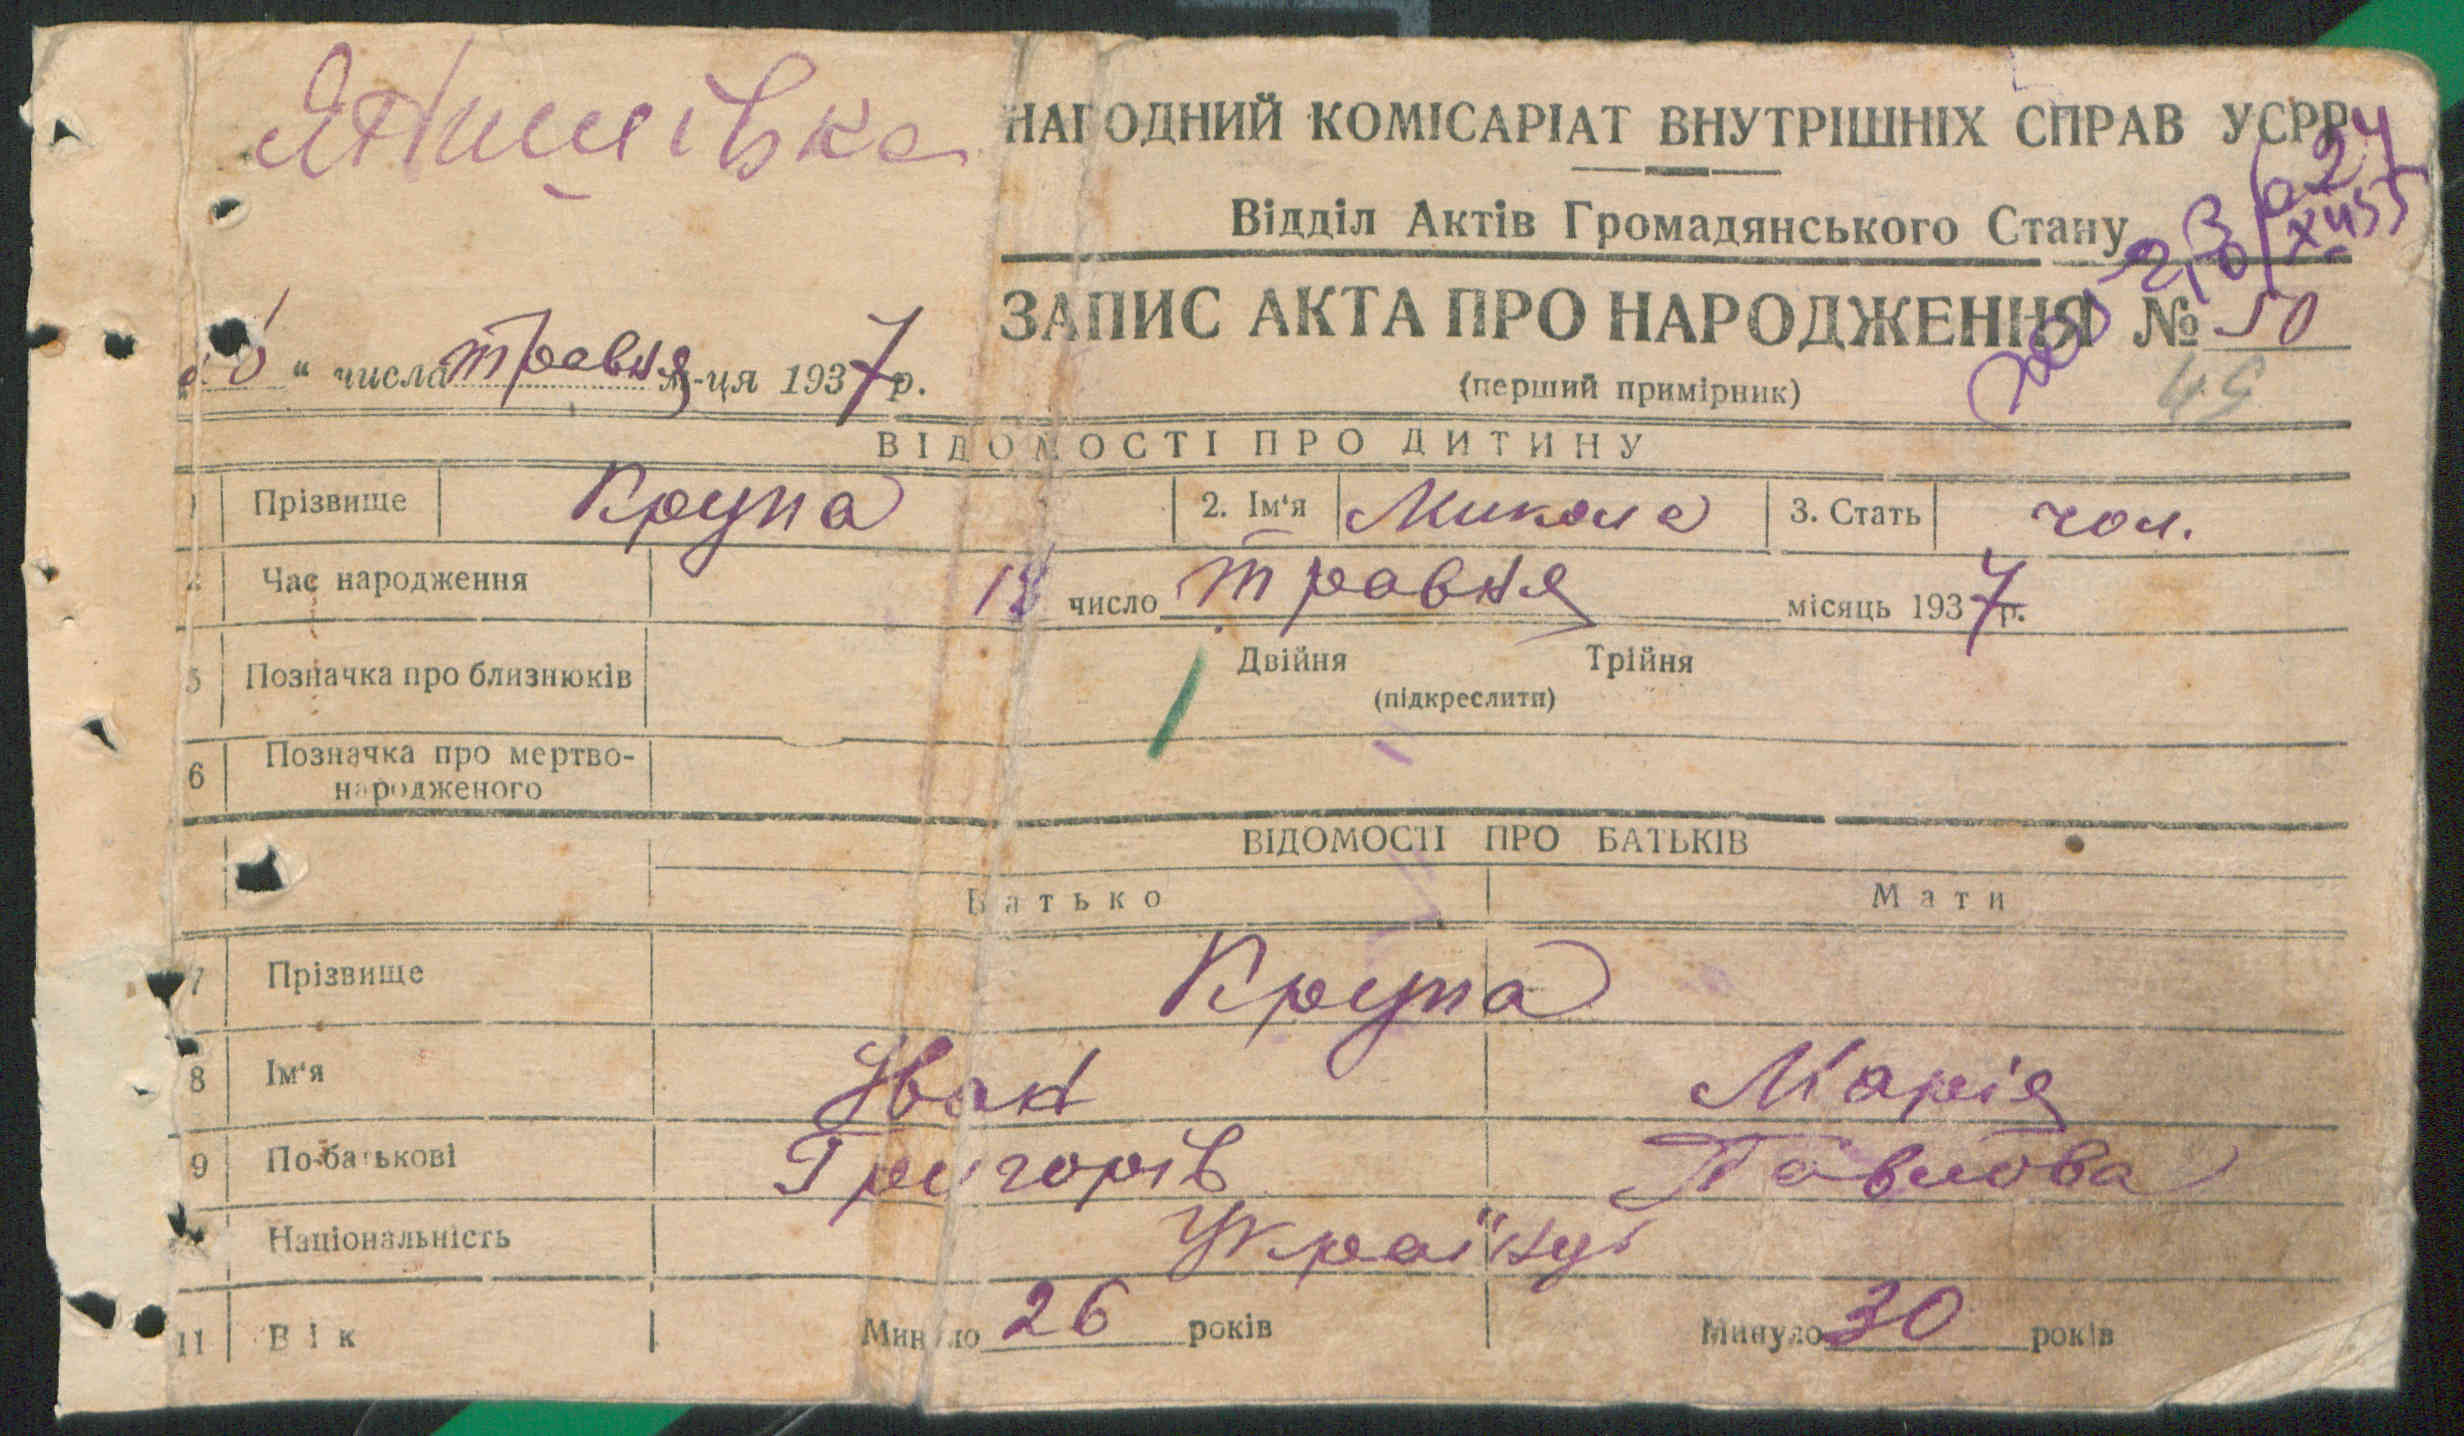 НАРОДНИЙ КОМІСАРІАТ ВНУТРІШНІХ СПРАВ УСРР
Відділ Актів Громадянського Стану
ЗАПИС АКТА ПРО НАРОДЖЕННЯ № 50
49
" числа травня м-ця 1937 р.
(перший примірник)
ВІДОМОСТІ ПРО ДИТИНУ
1 Прізвище Крупа 2. Ім'я Микола 3. Стать чол.
Час народження число травня місяць 1937 р.
5 Позначка про близнюків Двійня Трійня
(підкреслити)
6 Позначка про мертво-
народженого
ВІДОМОСТІ ПРО БАТЬКІВ
Батько Мати
7 Прізвище Крупа
8 Ім'я Іван Марія
9 По-батькові Григорів Павлова
Національність Українці
11 Вік Минуло 26 років Минуло 30 років